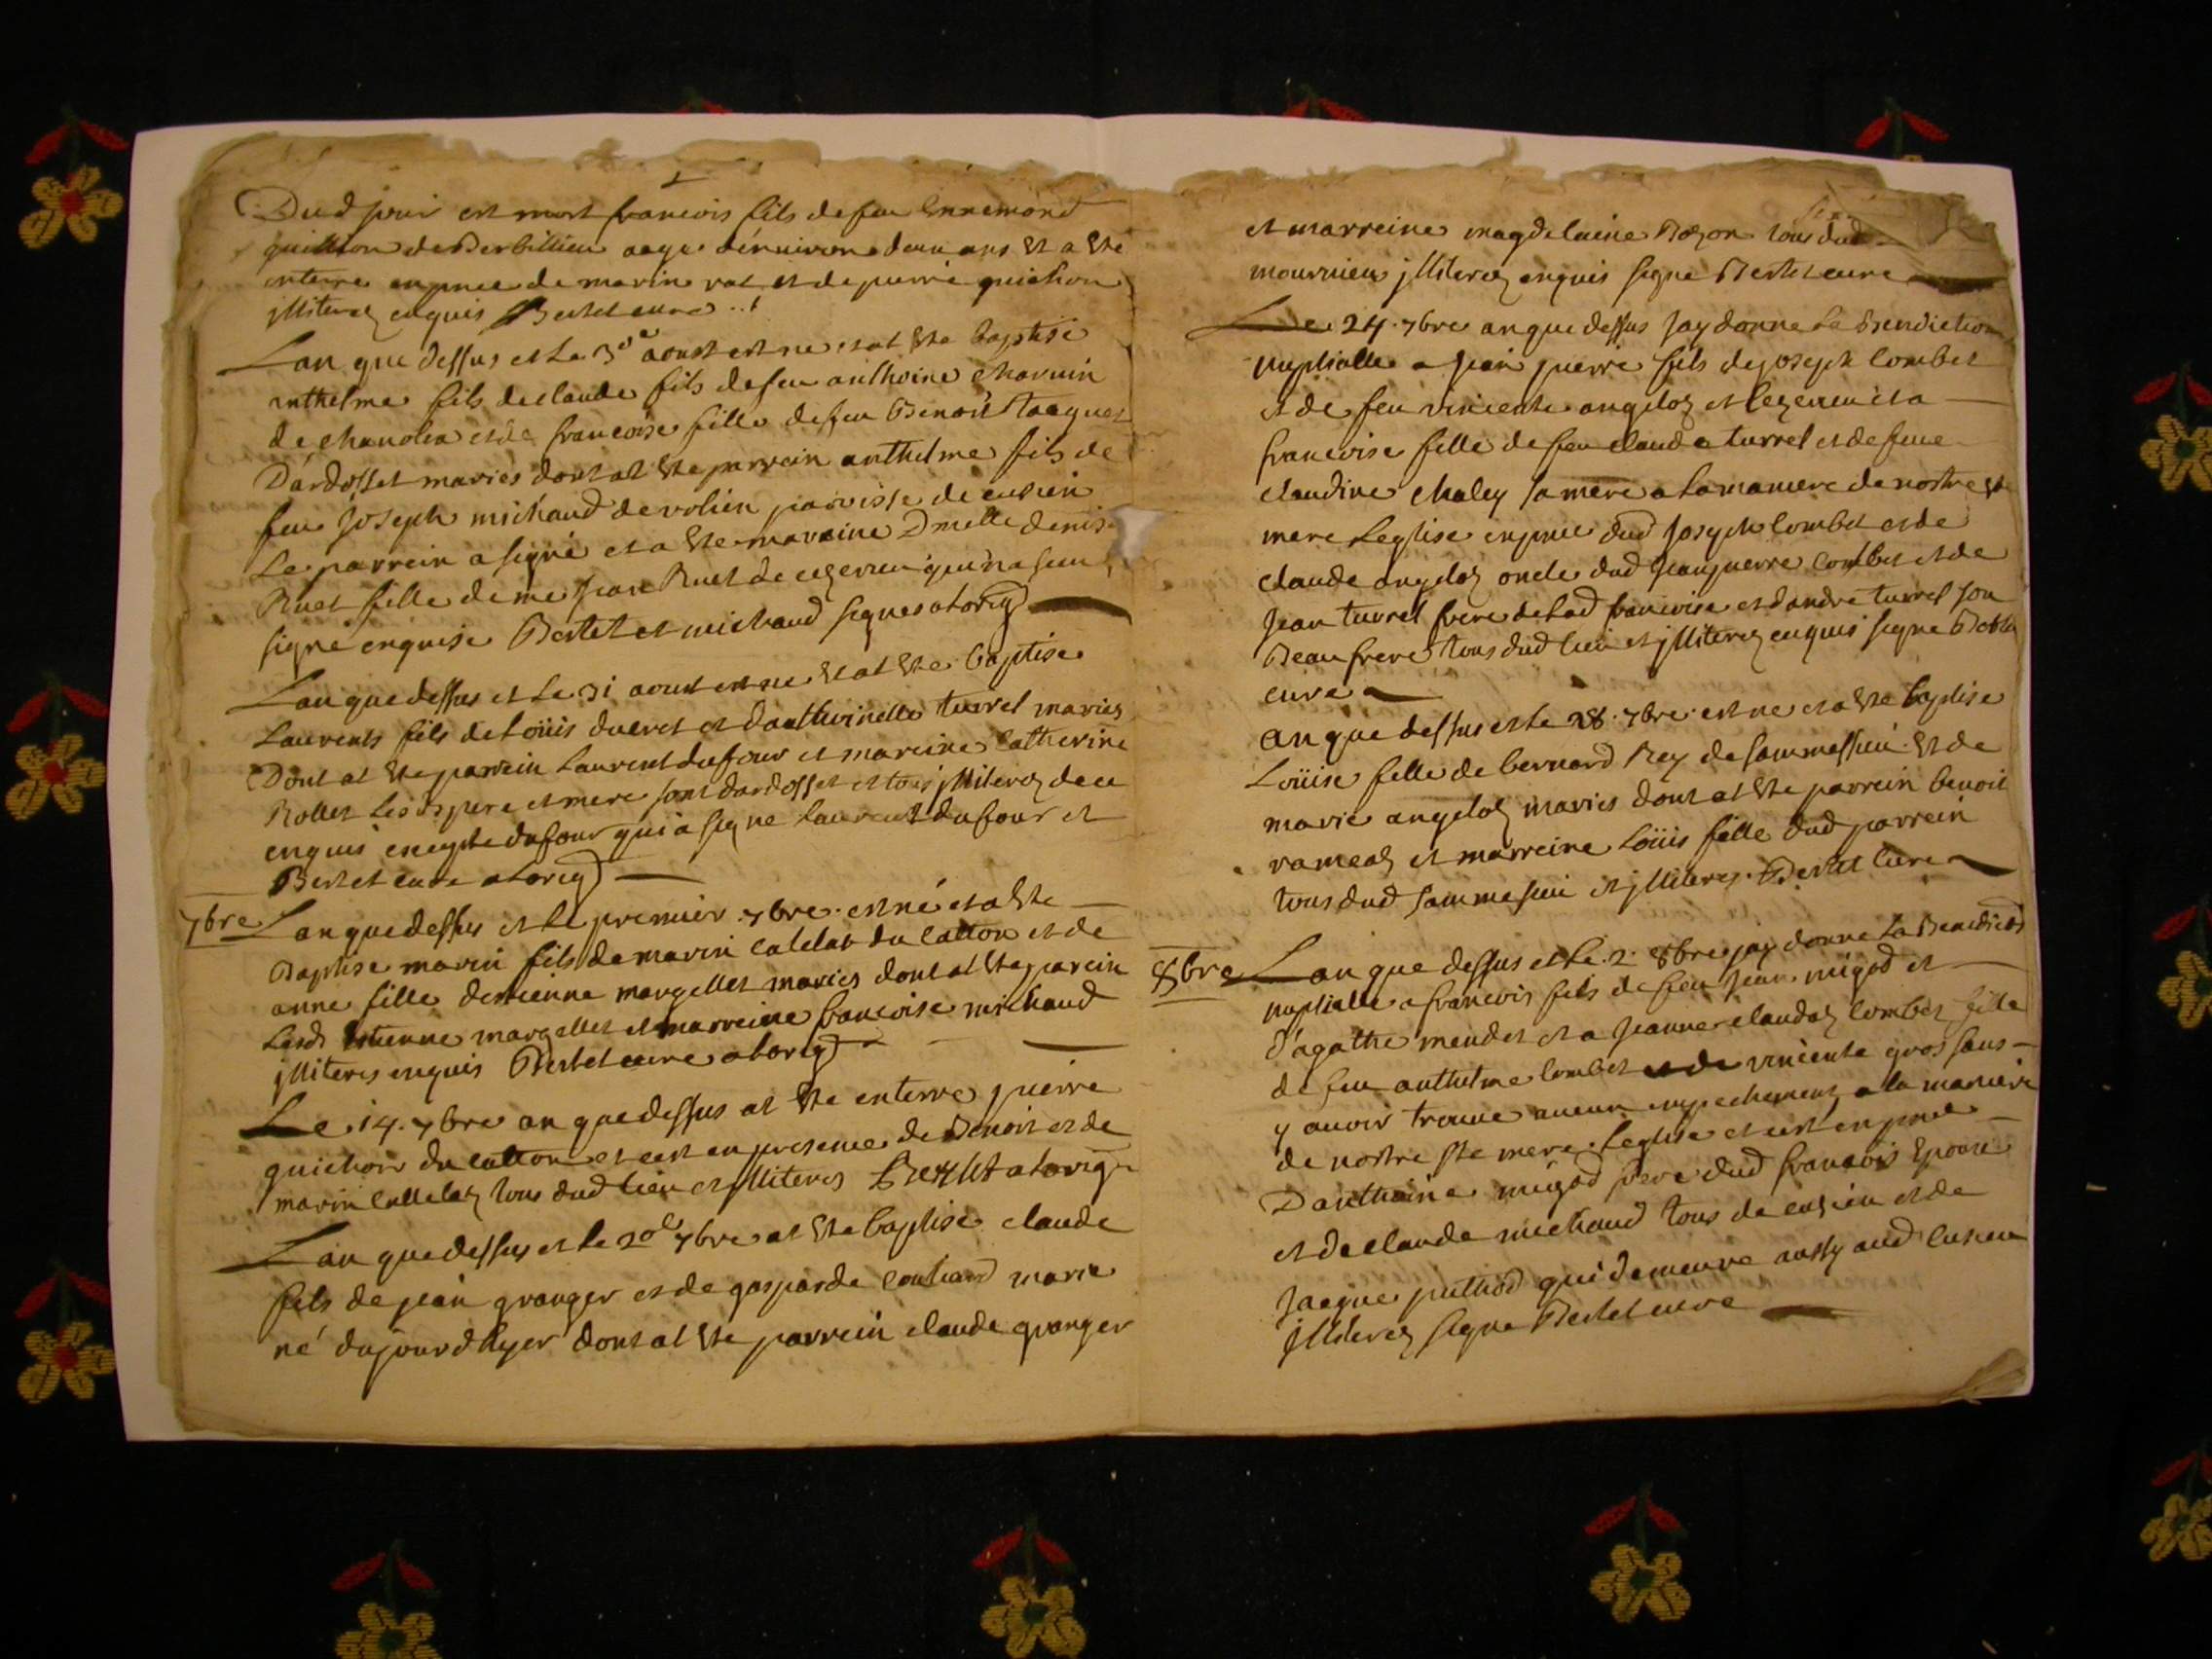 Dud jour est mort francois fils de feu Ennemond
quichon de Berbillieu aage dénuiron deux ans Et a Este
enterre en pnce de marin rat et de pierre quichon
jlliterez enquis Bertet cure
Lan que dessus et le 30e aoust est ne et at Este baptisé
anthelme fils de claude fils de feu anthoine charuin
de chanolea et de francoise fille de feu Benoit Jacquet
Dardosset mariés dont at Este parrein anthelme fils de
feu Joseph michaud de volien paroisse de cusien
Le parrein a signé et a Este marreine Dmelle denise
Ruet fille de me Jean Ruet de cezerieu qui na sceu
signé enquise Bertet et michaud signes a lorig)
Lan que dessus et le 31 aoust est ne Et at Este baptise
Laurents fils de Loüis ducret et danthoinette turrel mariez
Dont at Este parrein Laurent dufour et mareine Catherine
Rollet Lesds pere et mere sont dardosset et tous jlliterez de ce
enquis excepte dufour qui a signe laurent dufour et
Bertet cure a lorig)
7bre Lan que dessus et le premier 7bre est né et a Este
Baptise marin fils de marin callelat du catton et de
anne fille destienne margellet mariés dont at Este parein
Lesd Estienne margellet et marreine francoise michaud
jlliteres enquis Bertet cure a lorig)
Le 14 7bre an que dessus at Este enterre pierre
quichon du catton et cest en presence de Benoit et de
marin callelaz tous dud lieu et jlliteres Bertet a lorig
Lan que dessus et le 20e 7bre at Este baptise claude
fils de jean granger et de gasparde coutiard marie
né dujourdhyer dont at Este parrein claude granger
et marreine magdelaine Bozon tous dud
mournieu jlliterez enquis signe Bertet cure
Le 24 7bre an que dessus Jay donne La Benediction
nuptialle a jean pierre fils de joseph combet
et de feu vincente angeloz et lezerieu et a
francoise fille de feu claude turrel et de feue
claudine chaley sa mere a la maniere de nostre Ste
mere Leglise en pnce dud Joseph combet et de
claude angeloz oncle dud Jean pierre combet et de
Jean turrel frere de lad francoise et dandre turrel son
Beau frere tous dud lieu et jlliterez enquis signe Bertet
cure
an que dessus et le 28 7bre est ne et a Este baptise
Loüise fille de bernard Rey de sammessieu Et de
marie angeloz mariés dont at Este parrein benoit
rameaz et marreine Loüis fille dud parrein
tous dud sammesieu et jlliteres Bertet Cure
8bre Lan que dessus et le 2 8bre jay donne La Benediction
nuptialle a francois fils de feu Jean migod et
d'agathe mendet et a Jeanne claudaz combet fille
de feu anthelme combet et de vincente gros sans
y auoir trouue aucun empechement a la maniere
de nostre ste mere Leglise et cest en pnce
Danthoine migod frere dud francois Epoux
et de claude michaud tous de cusieu et de
Jacque puthod qui demeure aussy aud cusieu
jlliterez signe Bertet cure